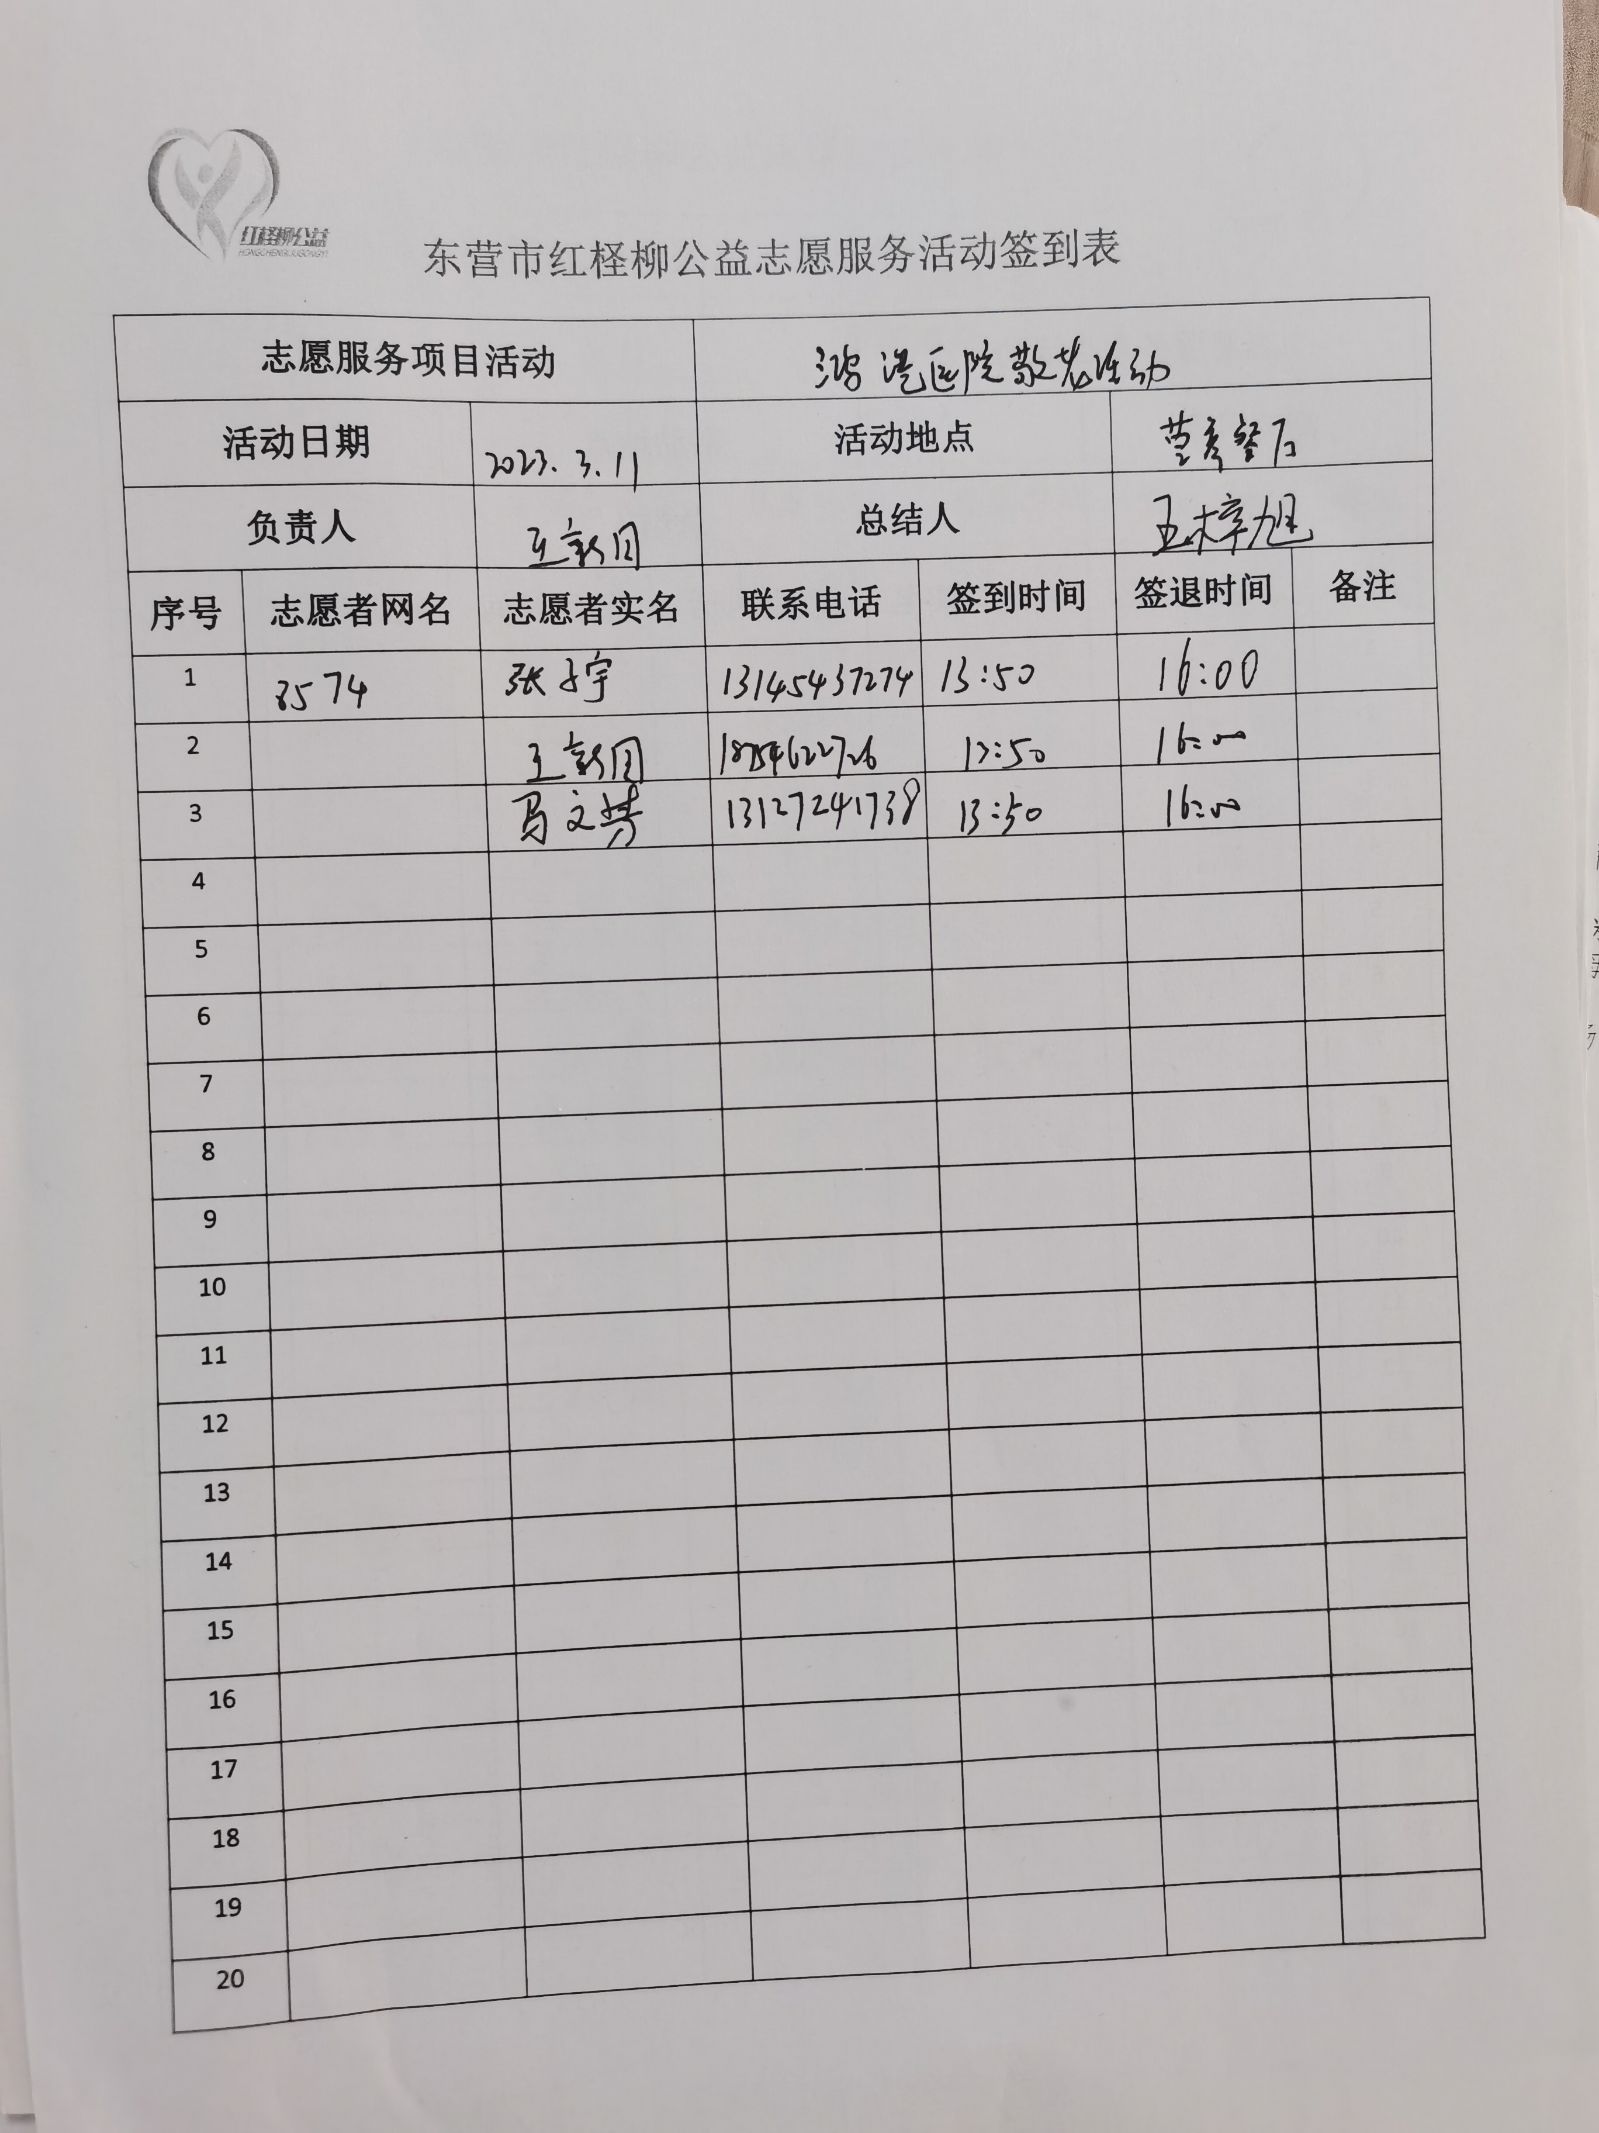 红柽柳公益
HONGCHENGLIUGONGYI
东营市红柽柳公益志愿服务活动签到表
志愿服务项目活动 鸿港医院敬老活动
活动日期 2023.3.11 活动地点
负责人 王新国 总结人 王梓旭
序号 志愿者网名 志愿者实名 联系电话 签到时间 签退时间 备注
1 8574 张子宇 13145437274 13:50 16:00
2 王新国 13:50 16:00
3 马文婷 13127241738 13:50 16:00
4
5
6
7
8
9
10
11
12
13
14
15
16
17
18
19
20